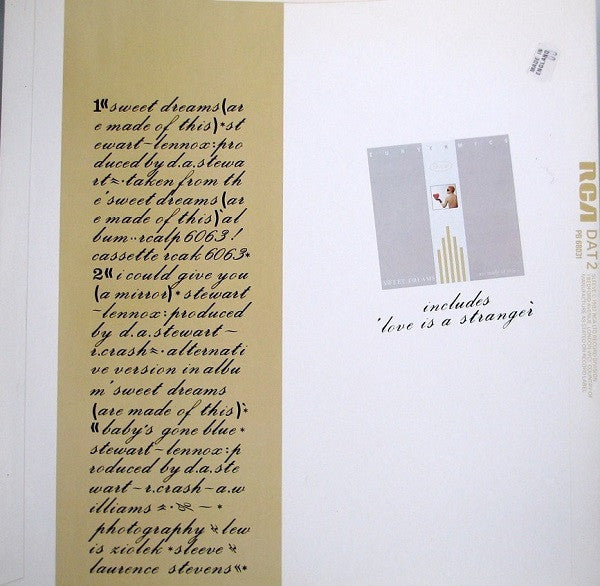 1"sweet dreams(ar
e made of this)*st
ewart~lennox:pro
duced by d.a.stewa
rt~·taken from th
e'sweet dreams(ar
e made of this)'al
bum··rcalp6063!
cassette rcak6063*
2"i could give you
(a mirror)*stewart
~lennox:produced
by d.a.stewart~
r.crash~·alternati
ve version in albu
m'sweet dreams
(are made of this)'*
"baby's gone blue*
stewart~lennox:p
roduced by d.a.ste
wart~r.crash~a.w
illiams
photography lew
is ziolek*sleeve
laurence stevens"*
MADE IN
ENGLAND
EURYTHMICS
SWEET DREAMS
includes
'love is a stranger'
RCA DAT 2
PB 68031